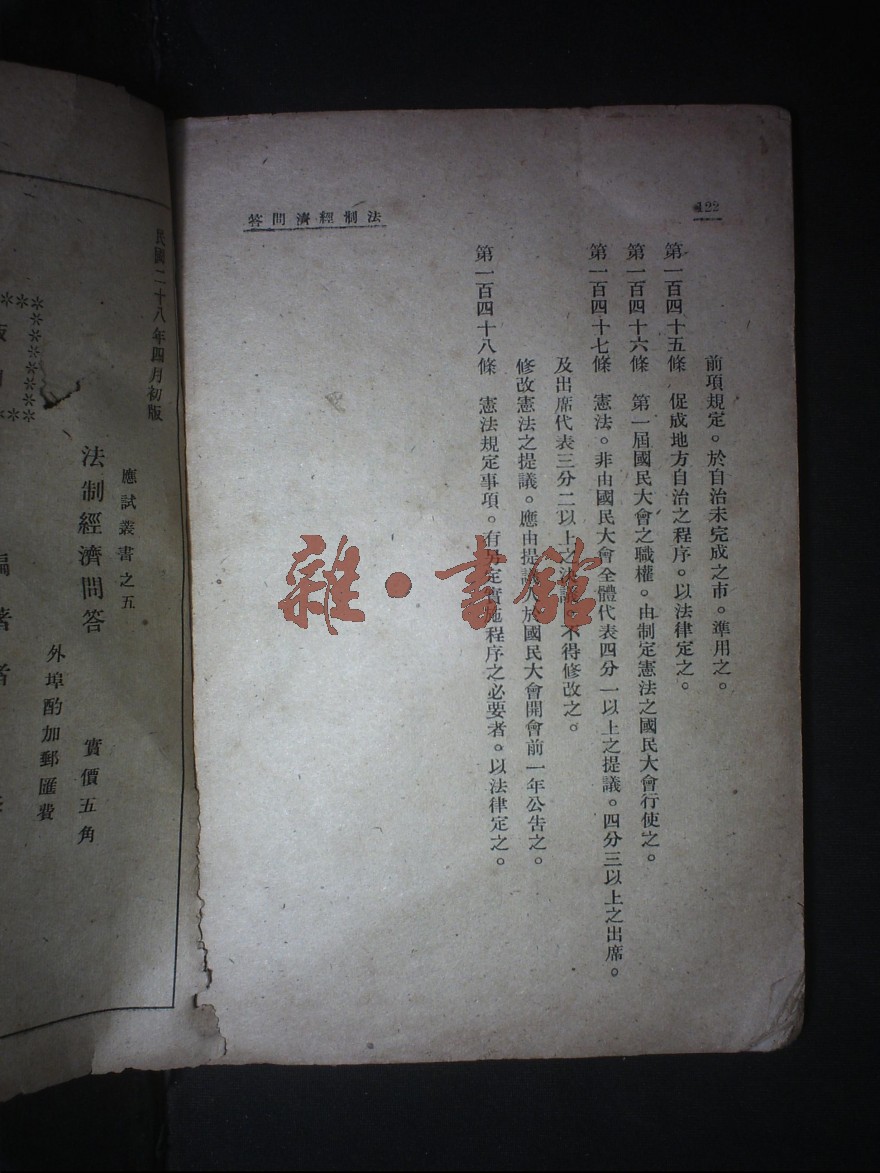 122
法制經濟問答
前項規定。於自治未完成之市。準用之。
第一百四十五條 促成地方自治之程序。以法律定之。
第一百四十六條 第一屆國民大會之職權。由制定憲法之國民大會行使之。
第一百四十七條 憲法。非由國民大會全體代表四分一以上之提議。四分三以上之出席。
及出席代表三分二以上之決議。不得修改之。
修改憲法之提議。應由提議人於國民大會開會前一年公告之。
第一百四十八條 憲法規定事項。有另定實施程序之必要者。以法律定之。
民國二十八年四月初版
應試叢書之五
法制經濟問答
實價五角
外埠酌加郵匯費
編著者
雜·書館